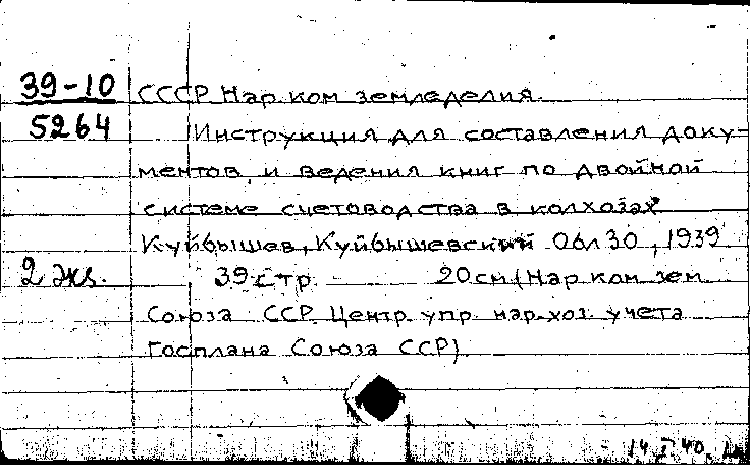 39-10 СССР Нар. ком. земледелия.
5264 Инструкция для составления доку-
ментов и ведения книг по двойной
системе счетоводства в колхозах
Куйбышев, Куйбышевский Облзо, 1939
2 экз. 39 стр. 20 см (Нар. ком. зем.
Союза ССР. Центр. упр. нар.-хоз. учета
Госплана Союза ССР).
14 I 40.